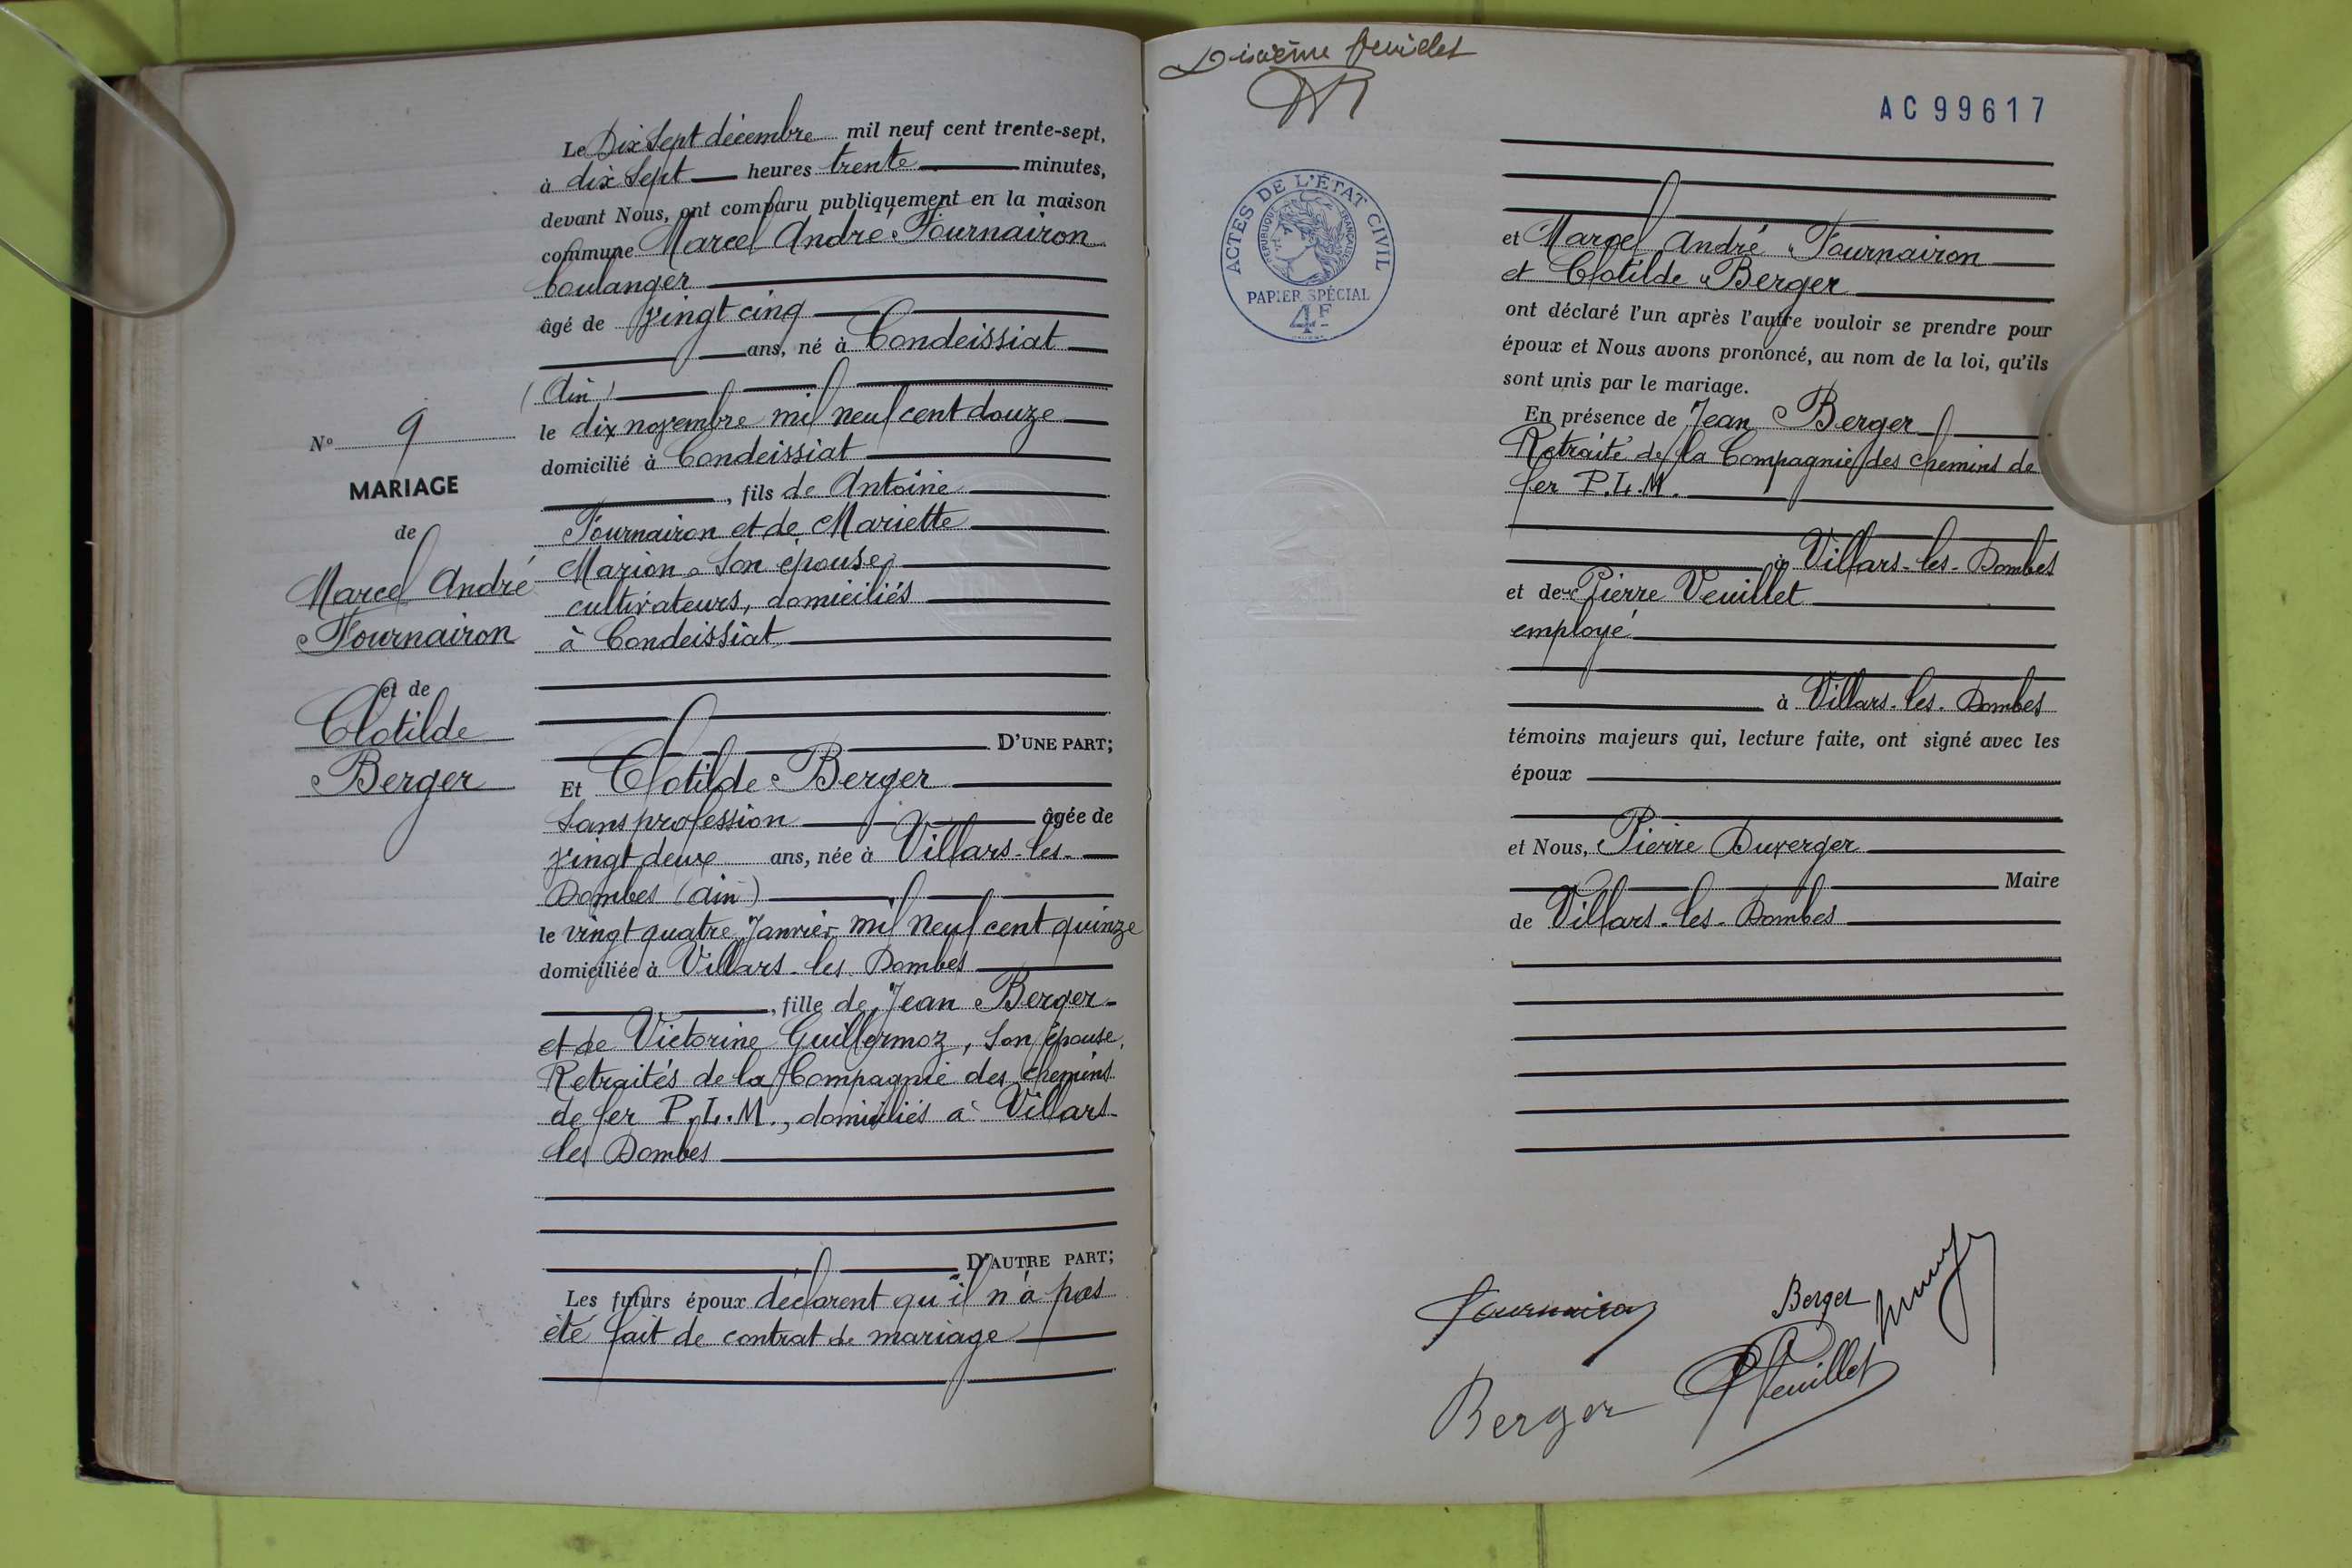 N° 9
MARIAGE
de
Marcel André
Fournairon
et de
Clotilde
Berger
Le Dix Sept décembre mil neuf cent trente-sept,
à dix Sept heures trente minutes,
devant Nous, ont comparu publiquement en la maison
commune Marcel André Fournairon
boulanger
âgé de vingt cinq
ans, né à Condeissiat
(Ain)
le dix novembre mil neuf cent douze
domicilié à Condeissiat
, fils de Antoine
Fournairon et de Mariette
Marion son épouse
cultivateurs, domiciliés
à Condeissiat
D'UNE PART;
Et Clotilde Berger
Sans profession âgée de
vingt deux ans, née à Villars-les-
Dombes (Ain)
le vingt quatre Janvier mil neuf cent quinze
domiciliée à Villars-les-Dombes
, fille de Jean Berger
et de Victorine Guillermoz, son épouse,
Retraités de la Compagnie des chemins
de fer P.L.M., domiciliés à Villars-
les Dombes
D'AUTRE PART;
Les futurs époux déclarent qu'il n'a pas
été fait de contrat de mariage
Dixième feuillet
AC 99617
ACTES DE L'ÉTAT CIVIL
RÉPUBLIQUE FRANÇAISE
PAPIER SPÉCIAL
4F
et Marcel André Fournairon
et Clotilde Berger
ont déclaré l'un après l'autre vouloir se prendre pour
époux et Nous avons prononcé, au nom de la loi, qu'ils
sont unis par le mariage.
En présence de Jean Berger
Retraité de la Compagnie des chemins de
fer P.L.M.
à Villars-les-Dombes
et de Pierre Veuillet
employé
à Villars-les-Dombes
témoins majeurs qui, lecture faite, ont signé avec les
époux
et Nous, Pierre Duverger
Maire
de Villars-les-Dombes
Fournairon
Berger
Berger
P Veuillet